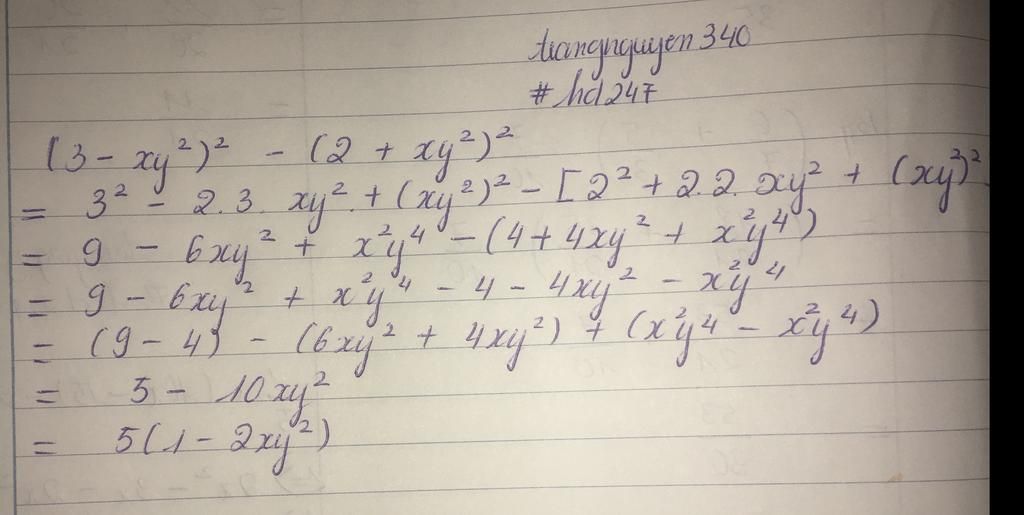 trangnguyen 340
# hd247
(3 - xy²)² - (2 + xy²)²
= 3² - 2.3. xy² + (xy²)² - [2² + 2.2. xy² + (xy²)²
= 9 - 6xy² + x²y⁴ - (4 + 4xy² + x²y⁴)
= 9 - 6xy² + x²y⁴ - 4 - 4xy² - x²y⁴
= (9 - 4) - (6xy² + 4xy²) + (x²y⁴ - x²y⁴)
= 5 - 10xy²
= 5(1 - 2xy²)